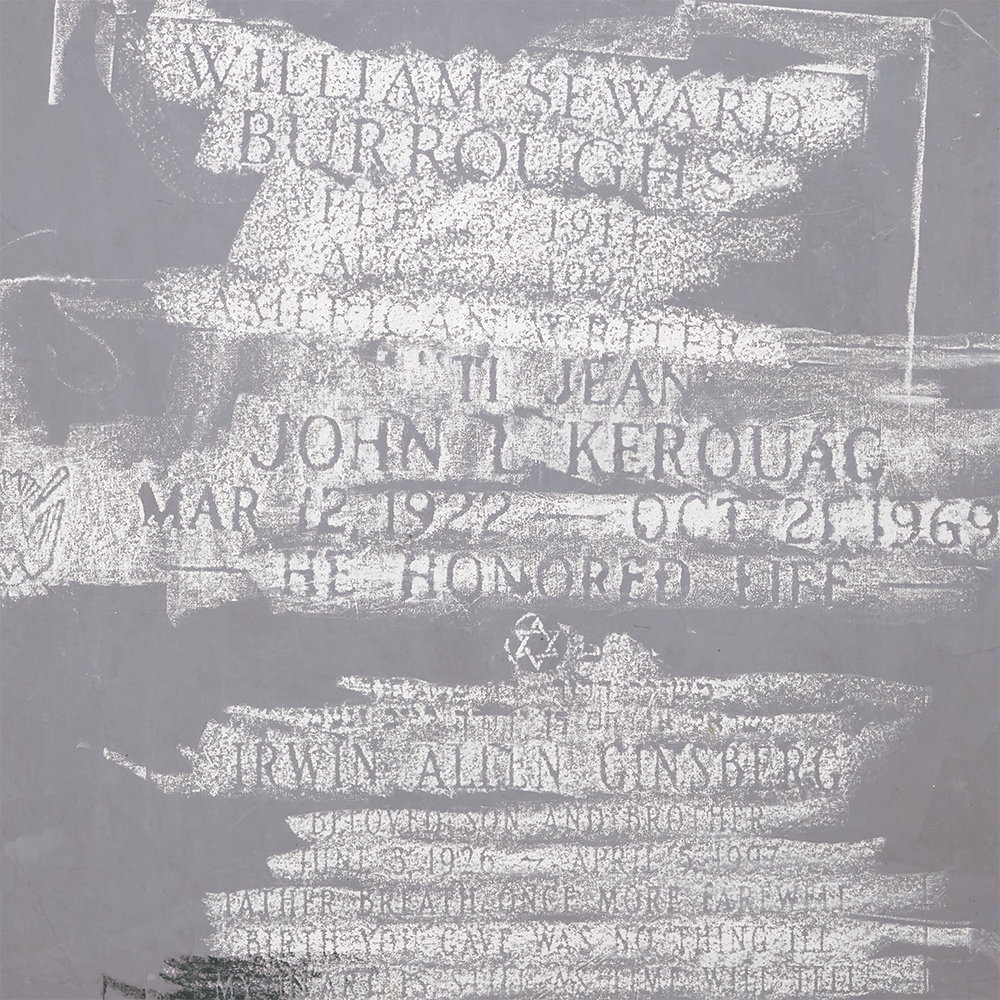 WILLIAM SEWARD
BURROUGHS
FEB. 5, 1914
AUG. 2, 1997
AMERICAN WRITER
"TI JEAN
JOHN L KEROUAC
MAR 12, 1922 — OCT 21, 1969
HE HONORED LIFE
IRWIN ALLEN GINSBERG
BELOVED SON AND BROTHER
JUNE 3, 1926 — APRIL 5, 1997
FATHER BREATH ONCE MORE FAREWELL
BIRTH YOU GAVE WAS NO THING ILL
MY HEART IS STILL AS TIME WILL TELL